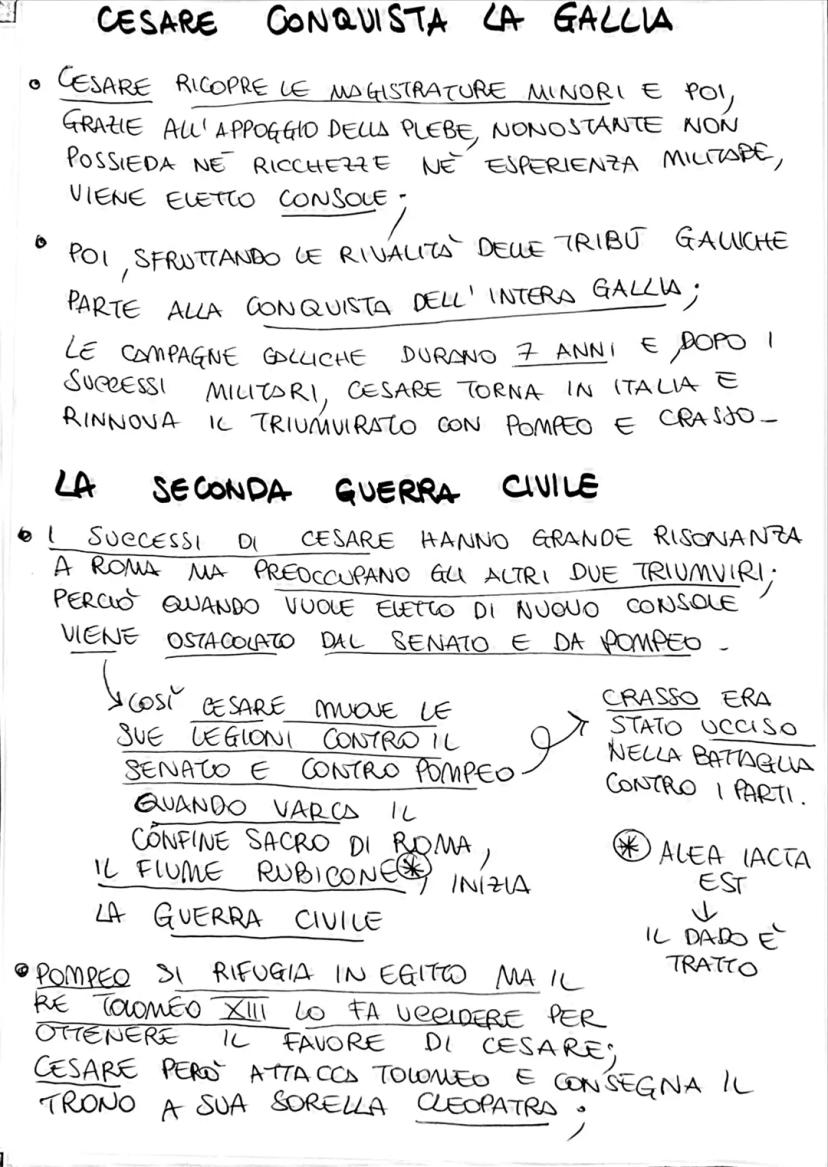 CESARE CONQUISTA LA GALLIA
• CESARE RICOPRE LE MAGISTRATURE MINORI E POI,
GRAZIE ALL'APPOGGIO DELLA PLEBE, NONOSTANTE NON
POSSIEDA NÈ RICCHEZZE NÈ ESPERIENZA MILITARE,
VIENE ELETTO CONSOLE;
• POI, SFRUTTANDO LE RIVALITÀ DELLE TRIBÙ GALLICHE
PARTE ALLA CONQUISTA DELL'INTERA GALLIA;
LE CAMPAGNE GALLICHE DURANO 7 ANNI E, DOPO I
SUCCESSI MILITARI, CESARE TORNA IN ITALIA E
RINNOVA IL TRIUMVIRATO CON POMPEO E CRASSO-
LA SECONDA GUERRA CIVILE
• I SUCCESSI DI CESARE HANNO GRANDE RISONANZA
A ROMA MA PREOCCUPANO GLI ALTRI DUE TRIUMVIRI;
PERCIÒ QUANDO VUOLE ELETTO DI NUOVO CONSOLE
VIENE OSTACOLATO DAL SENATO E DA POMPEO -
↳ COSÌ CESARE MUOVE LE
SUE LEGIONI CONTRO IL
SENATO E CONTRO POMPEO
QUANDO VARCA IL
CONFINE SACRO DI ROMA,
IL FIUME RUBICONE*, INIZIA
LA GUERRA CIVILE
CRASSO ERA
STATO UCCISO
NELLA BATTAGLIA
CONTRO I PARTI.
* ALEA IACTA
EST
↓
IL DADO È
TRATTO
• POMPEO SI RIFUGIA IN EGITTO MA IL
RE TOLOMEO XIII LO FA UCCIDERE PER
OTTENERE IL FAVORE DI CESARE;
CESARE PERÒ ATTACCA TOLOMEO E CONSEGNA IL
TRONO A SUA SORELLA CLEOPATRA;